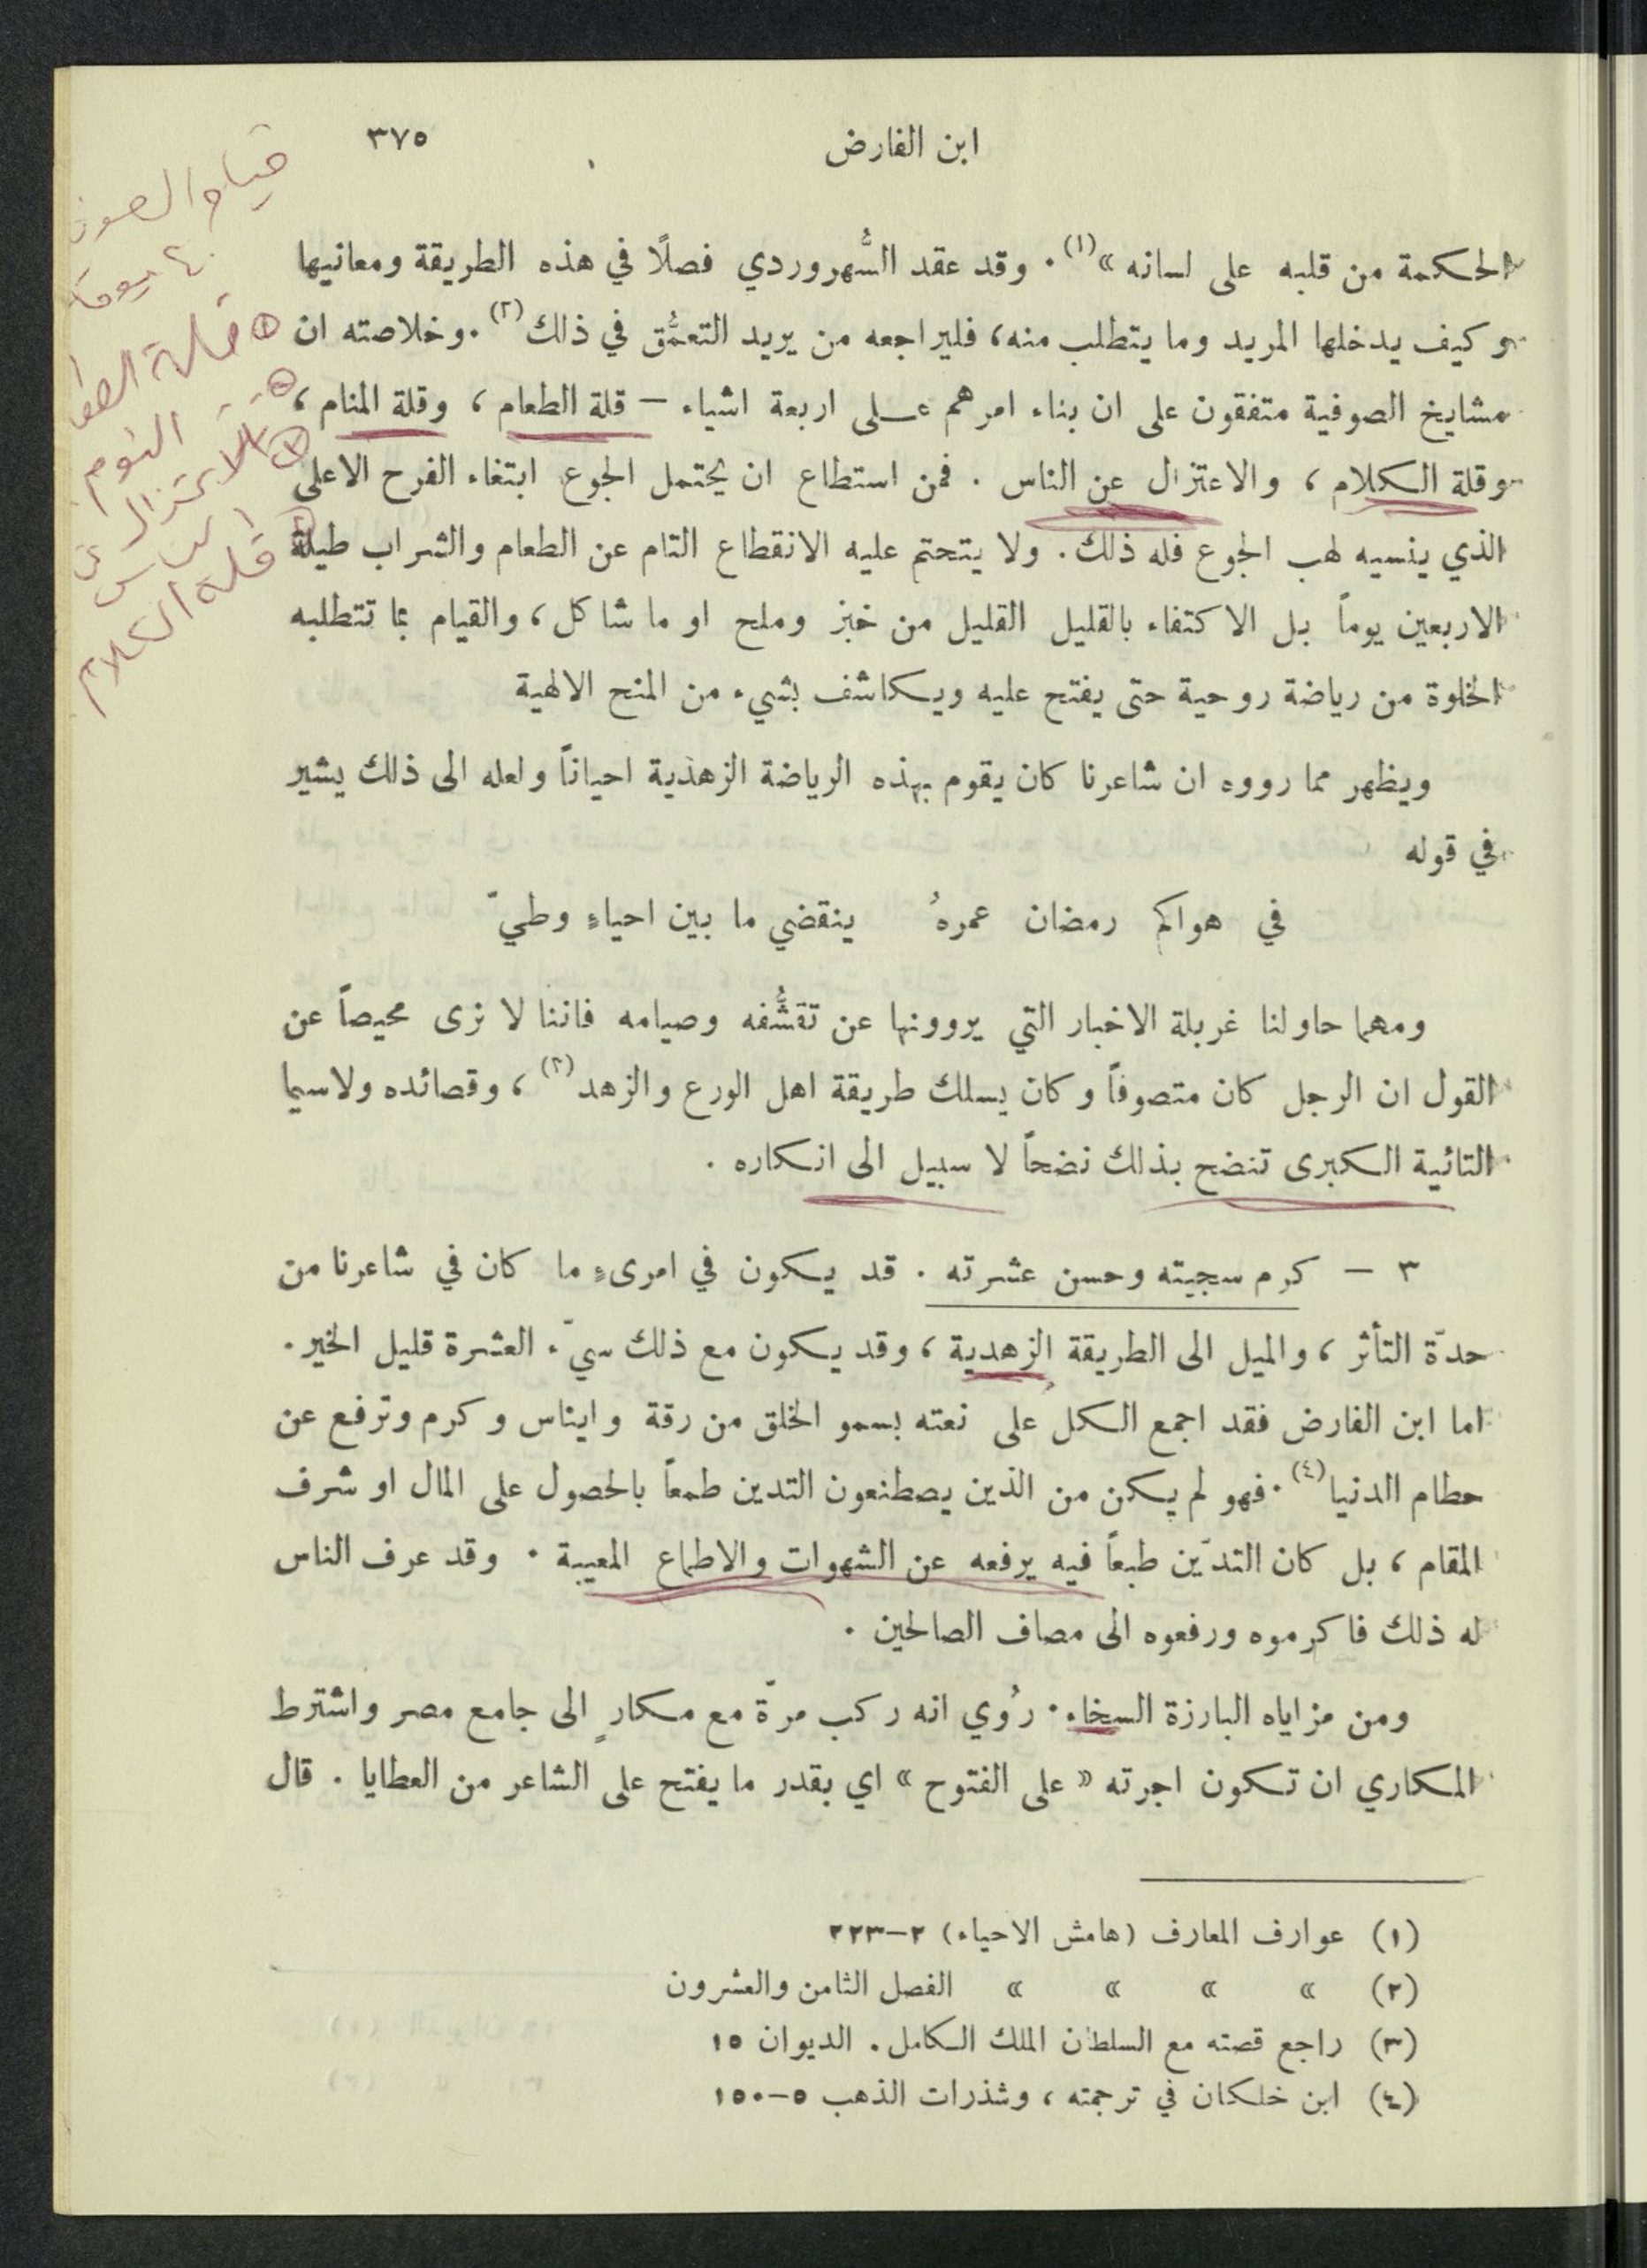 ابن الفارض ٣٧٥
الحكمة من قلبه على لسانه »(١). وقد عقد السُّهروردي فصلًا في هذه الطريقة ومعانيها
وكيف يدخلها المريد وما يتطلب منه، فليراجعه من يريد التعمُّق في ذلك(٢). وخلاصته ان
مشايخ الصوفية متفقون على ان بناء امرهم عـلى اربعة اشياء — قلة الطعام ، وقلة المنام ،
وقلة الكلام ، والاعتزال عن الناس . فمن استطاع ان يحتمل الجوع ابتغاء الفرح الاعلى
الذي ينسيه لهب الجوع فله ذلك . ولا يتحتم عليه الانقطاع التام عن الطعام والشراب طيلة
الاربعين يوماً بل الاكتفاء بالقليل القليل من خبز وملح او ما شاكل ، والقيام بما تتطلبه
الخلوة من رياضة روحية حتى يفتح عليه ويكاشف بشيء من المنح الالهية
ويظهر مما رووه ان شاعرنا كان يقوم بهذه الرياضة الزهدية احياناً ولعله الى ذلك يشير
في قوله
في هواكم رمضان عمرهُ ينقضي ما بين احياءٍ وطيّ
ومهما حاولنا غربلة الاخبار التي يروونها عن تقشُّفه وصيامه فاننا لا نرى محيصاً عن
القول ان الرجل كان متصوفاً وكان يسلك طريقة اهل الورع والزهد(٣) ، وقصائده ولاسيما
التائية الكبرى تنضح بذلك نضحاً لا سبيل الى انكاره .
٣ — كرم سجيته وحسن عشرته . قد يكون في امرىءٍ ما كان في شاعرنا من
حدّة التأثر ، والميل الى الطريقة الزهدية ، وقد يكون مع ذلك سيّء العشرة قليل الخير .
اما ابن الفارض فقد اجمع الكل على نعته بسمو الخلق من رقة وايناس وكرم وترفع عن
حطام الدنيا(٤). فهو لم يكن من الذين يصطنعون التدين طمعاً بالحصول على المال او شرف
المقام ، بل كان التديّن طبعاً فيه يرفعه عن الشهوات والاطماع المعيبة . وقد عرف الناس
له ذلك فاكرموه ورفعوه الى مصاف الصالحين .
ومن مزاياه البارزة السخاء . رُوي انه ركب مرّة مع مكارٍ الى جامع مصر واشترط
المكاري ان تكون اجرته « على الفتوح » اي بقدر ما يفتح على الشاعر من العطايا . قال
(١) عوارف المعارف (هامش الاحياء) ٢-٢٢٣
(٢) » » » » الفصل الثامن والعشرون
(٣) راجع قصته مع السلطان الملك الكامل . الديوان ١٥
(٤) ابن خلكان في ترجمته ، وشذرات الذهب ٥-١٥٠
٤٠ يوماً
قلة
النوم
الاعتزال عن
الناس
قلة الكلام